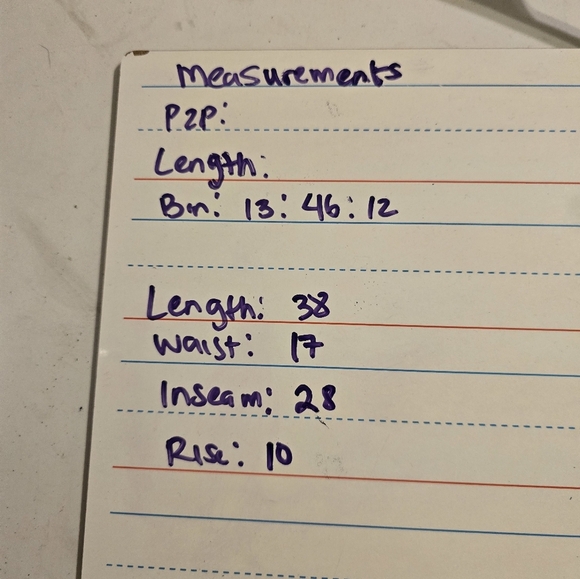 Measurements
P2P:
Length:
Bin: 13: 46: 12
Length: 38
Waist: 17
Inseam: 28
Rise: 10